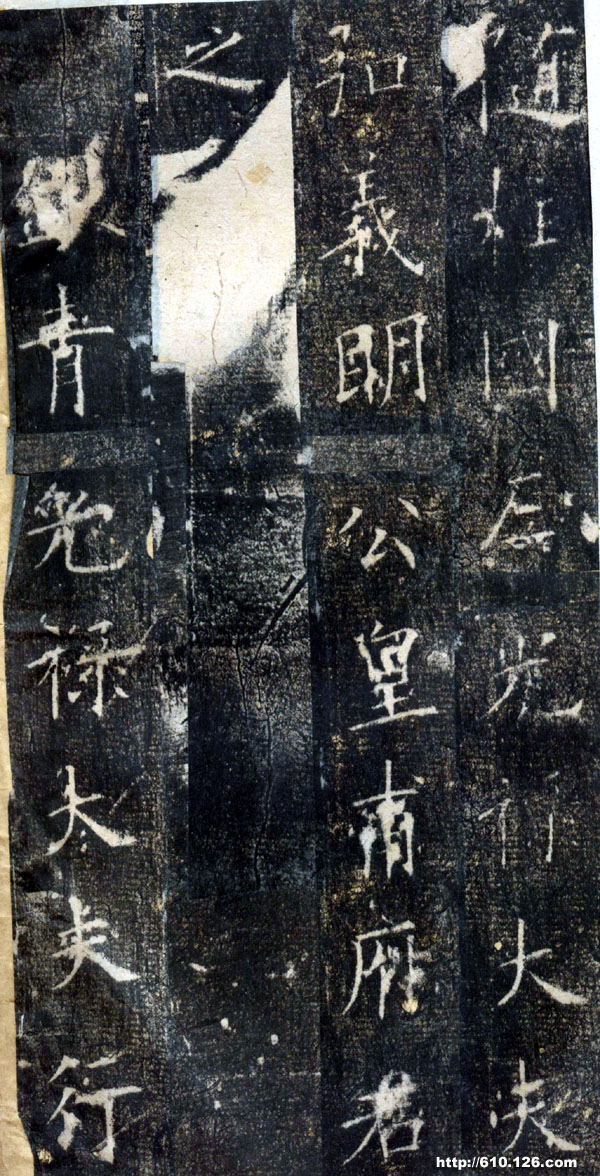 隨柱國左光大夫
弘義明公皇甫府君
之
青光祿大夫行
http://610.126.com